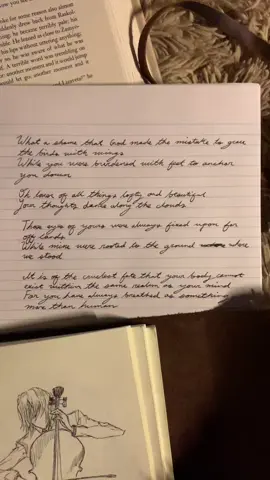 now you
for some reason also almost
suddenly drew back from Raskol-
he became terrible: pale; his
He leaned so close to Zamyo-
his lips without uttering anything;
he was aware of what he was
A terrible word was trembling on
another moment and it would jump
let go, another moment and it
What a shame that God made the mistake to grace
the birds with wings
While you were burdened with feet to anchor
you down
Oh lover of all things lofty and beautiful
Your thoughts dance along the clouds
Those eyes of yours were always fixed upon far
off lands
While mine were rooted to the ground where
we stood
It is of the cruelest fate that your body cannot
exist within the same realm as your mind
For you have always breathed as something
more than human